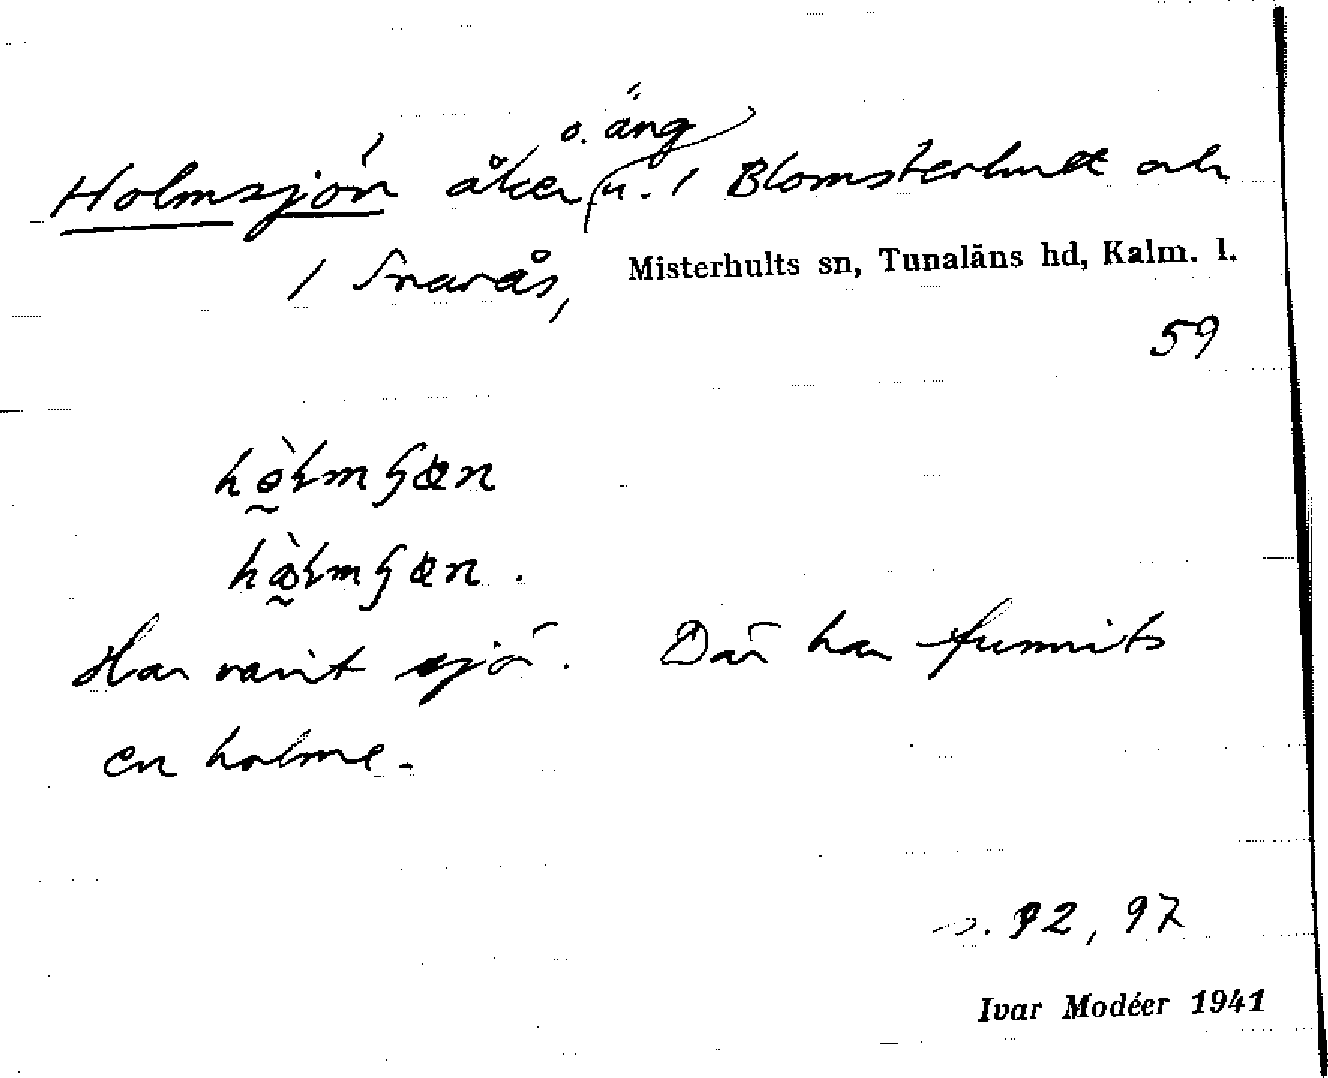 Holmsjön åker o. äng u. i Blomsterhult och
i Snarås, Misterhults sn, Tunaläns hd, Kalm. l.
59
Har varit sjö. Där har funnits
en holme.
s. 92, 97
Ivar Modéer 1941